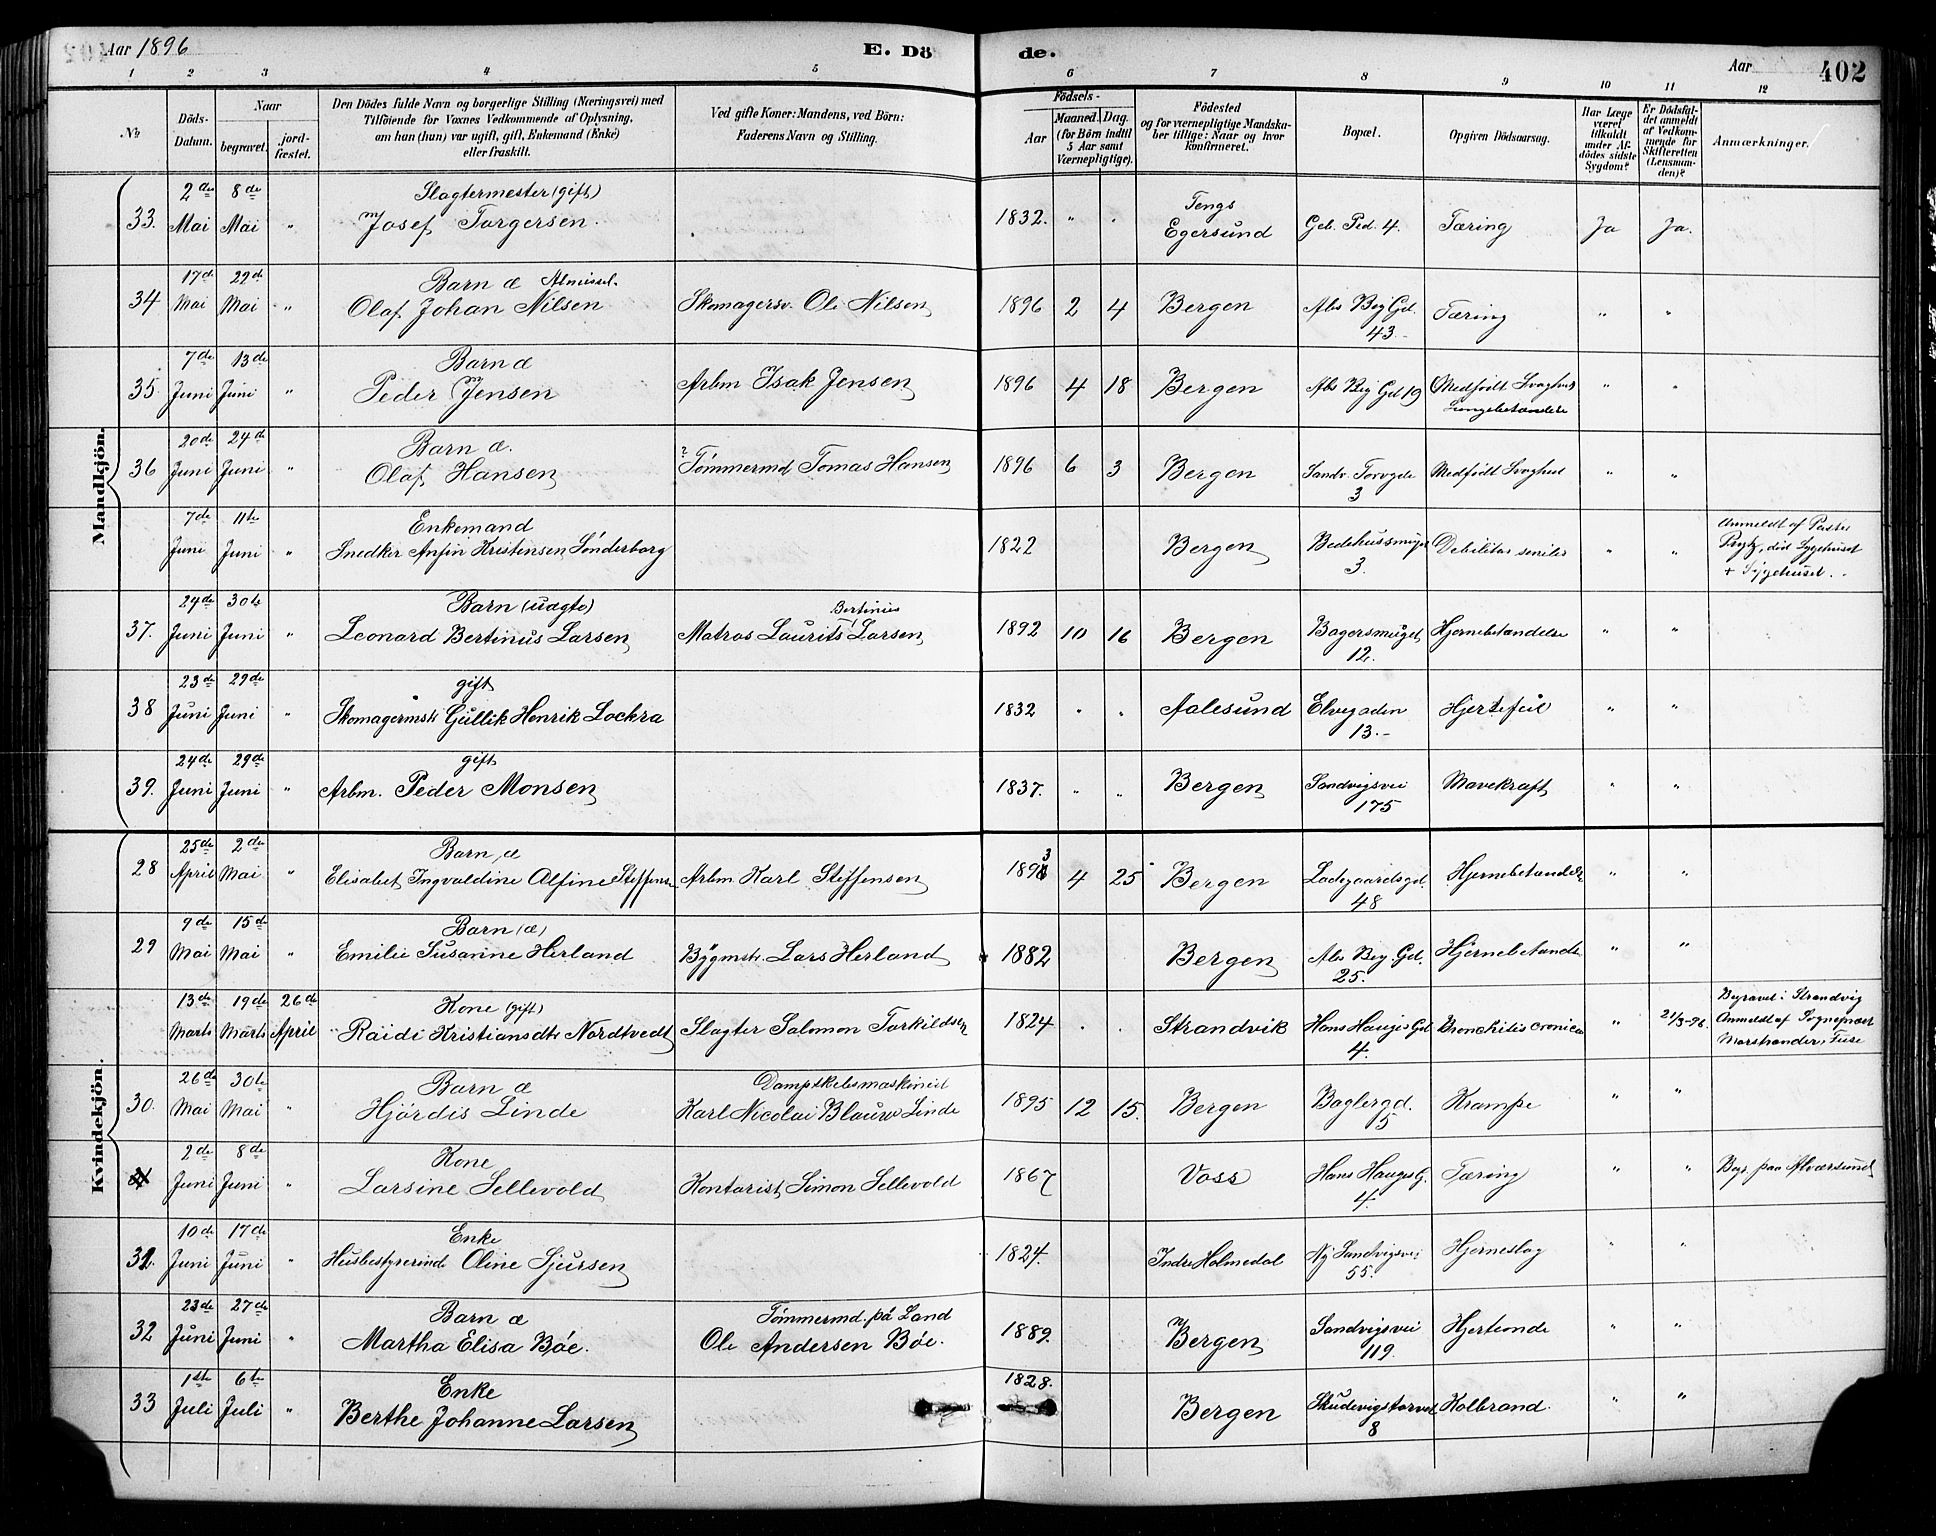 Aar 1896
E. Dö
de.
Aar
402
1 2 3 4 5 6 7 8 9 10 11 12
No
Döds-Datum.
Naar
begravet.
jord-fæstet.
Den Dödes fulde Navn og borgerlige Stilling (Næringsvei) med
Tilföiende for Voxnes Vedkommende af Oplysning,
om han (hun) var ugift, gift, Enkemand (Enke)
eller fraskilt.
Ved gifte Koner: Mandens, ved Börn:
Faderens Navn og Stilling.
Födsels-
Aar
Maaned. Dag.
(for Börn indtil
5 Aar samt
Værnepligtige).
Födested
og for værnepligtige Mandska-
ber tillige: Naar og hvor
konfirmeret.
Bopæl.
Opgiven Dödsaarsag.
Har Læge
været
tilkaldt
under Af-
dödes sidste
Sygdom?
Er Dödsfal-
det anmeldt
af Vedkom-
mende for
Skifteretten
(Lensman-
den)?
Anmærkninger.
Mandkjön.
33. 2de Mai 8de Mai " Slagtermester (gift)
Josef Torgersen. 1832. " " Tengs Egersund Geb. Ped. 4. Tæring Ja Ja.
34 17d. Mai 22de Mai " Barn æ
Olaf Johan Nilsen Skomagersv. Ole Nilsen 1896 2 4 Bergen Abs Bey Gd. 43. Tæring " "
35 7de Juni 13de Juni " Barn æ
Peder Jensen Arbm Isak Jensen 1896 4 18 Bergen Abs Bey Gd 19 Medfödt Svaghed
Lungebetændelse " "
36 20de Juni 24de Juni " Barn æ.
Olaf Hansen Tömmermd Tomas Hansen 1896 6 3 Bergen Sandv. Torvgde 3 Medfödt Svaghed " "
7de Juni 11te Juni " Enkemand
Snedker Anfin Kristensen Sönderborg 1822 Bergen Bedehussmuget 3. Debilitas senilis " " Anmeldt af Pastor
Prytz, död Sygehuset
+ Sygehuset.
37. 24de Juni 30te Juni " Barn (uægte)
Leonard Bertinus Larsen Matros Laurits Bertinius Larsen 1892 10 16 Bergen Bagersmuget 12. Hjernebetændelse " "
38 23de Juni 29de Juni " gift
Skomagermstr Gullik Henrik Lockra 1832 " " Aalesund Elvegaden 13.- Hjertefeil " "
39. 24de Juni 29de Juni " gift
Arbm. Peder Monsen 1837. " " Bergen Sandvigsvei 175 Mavekræft " "
Kvindekjön.
28 25de April 2de Mai " Barn æ
Elisabet Ingvaldine Alfine Steffensen Arbm Karl Steffensen 1893 4 25 Bergen Ladegaardsgd. 48 Hjernebetændelse " "
29 9de Mai 15de Mai " Barn (æ)
Emilie Susanne Herland Bygmstr. Lars Herland 1882 Bergen Abs Bey. Gd. 25. Hjernebetænde " "
13de Marts 19de Marts 26de April Kone (gift)
Raidi Kristiansdtr Nordtvedt Slagter Salomon Torkildsen 1824 . . Strandvik Hans Hauges Gd 4. Bronchitis cronica " 21/3-96. Begravet i Strandvig
Anmeldt af Sogneprest
Marstrander, Fuse
30. 26de Mai 30te Mai " Barn æ
Hjördis Linde Dampskibsmaskinist
Karl Nicolai Blauw Linde 1895 12 15. Bergen Baglergd. 5 Krampe " "
2de Juni 8de Juni " Kone
Larsine Sellevold Kontorist Simon Sellevold 1867 Voss Hans Hauges G. 4. Tæring " " Begr. paa Alversund
31. 10de Juni 17de Juni " Enke
Husbestyrerind Oline Sjursen 1824. Indre Holmedal Ny Sandvigsvei 55. Hjerneslag " "
32 23de Juni 27de Juni " Barn æ
Martha Elisa Böe. Tömmermd. på Land
Ole Andersen Böe. 1889. Bergen Sandvigsvei 119 Hjerteonde " "
33 1ste Juli 6te Juli " Enke
Berthe Johanne Larsen 1828. Bergen Skudevigstorvet 8 Kolbrand. " "